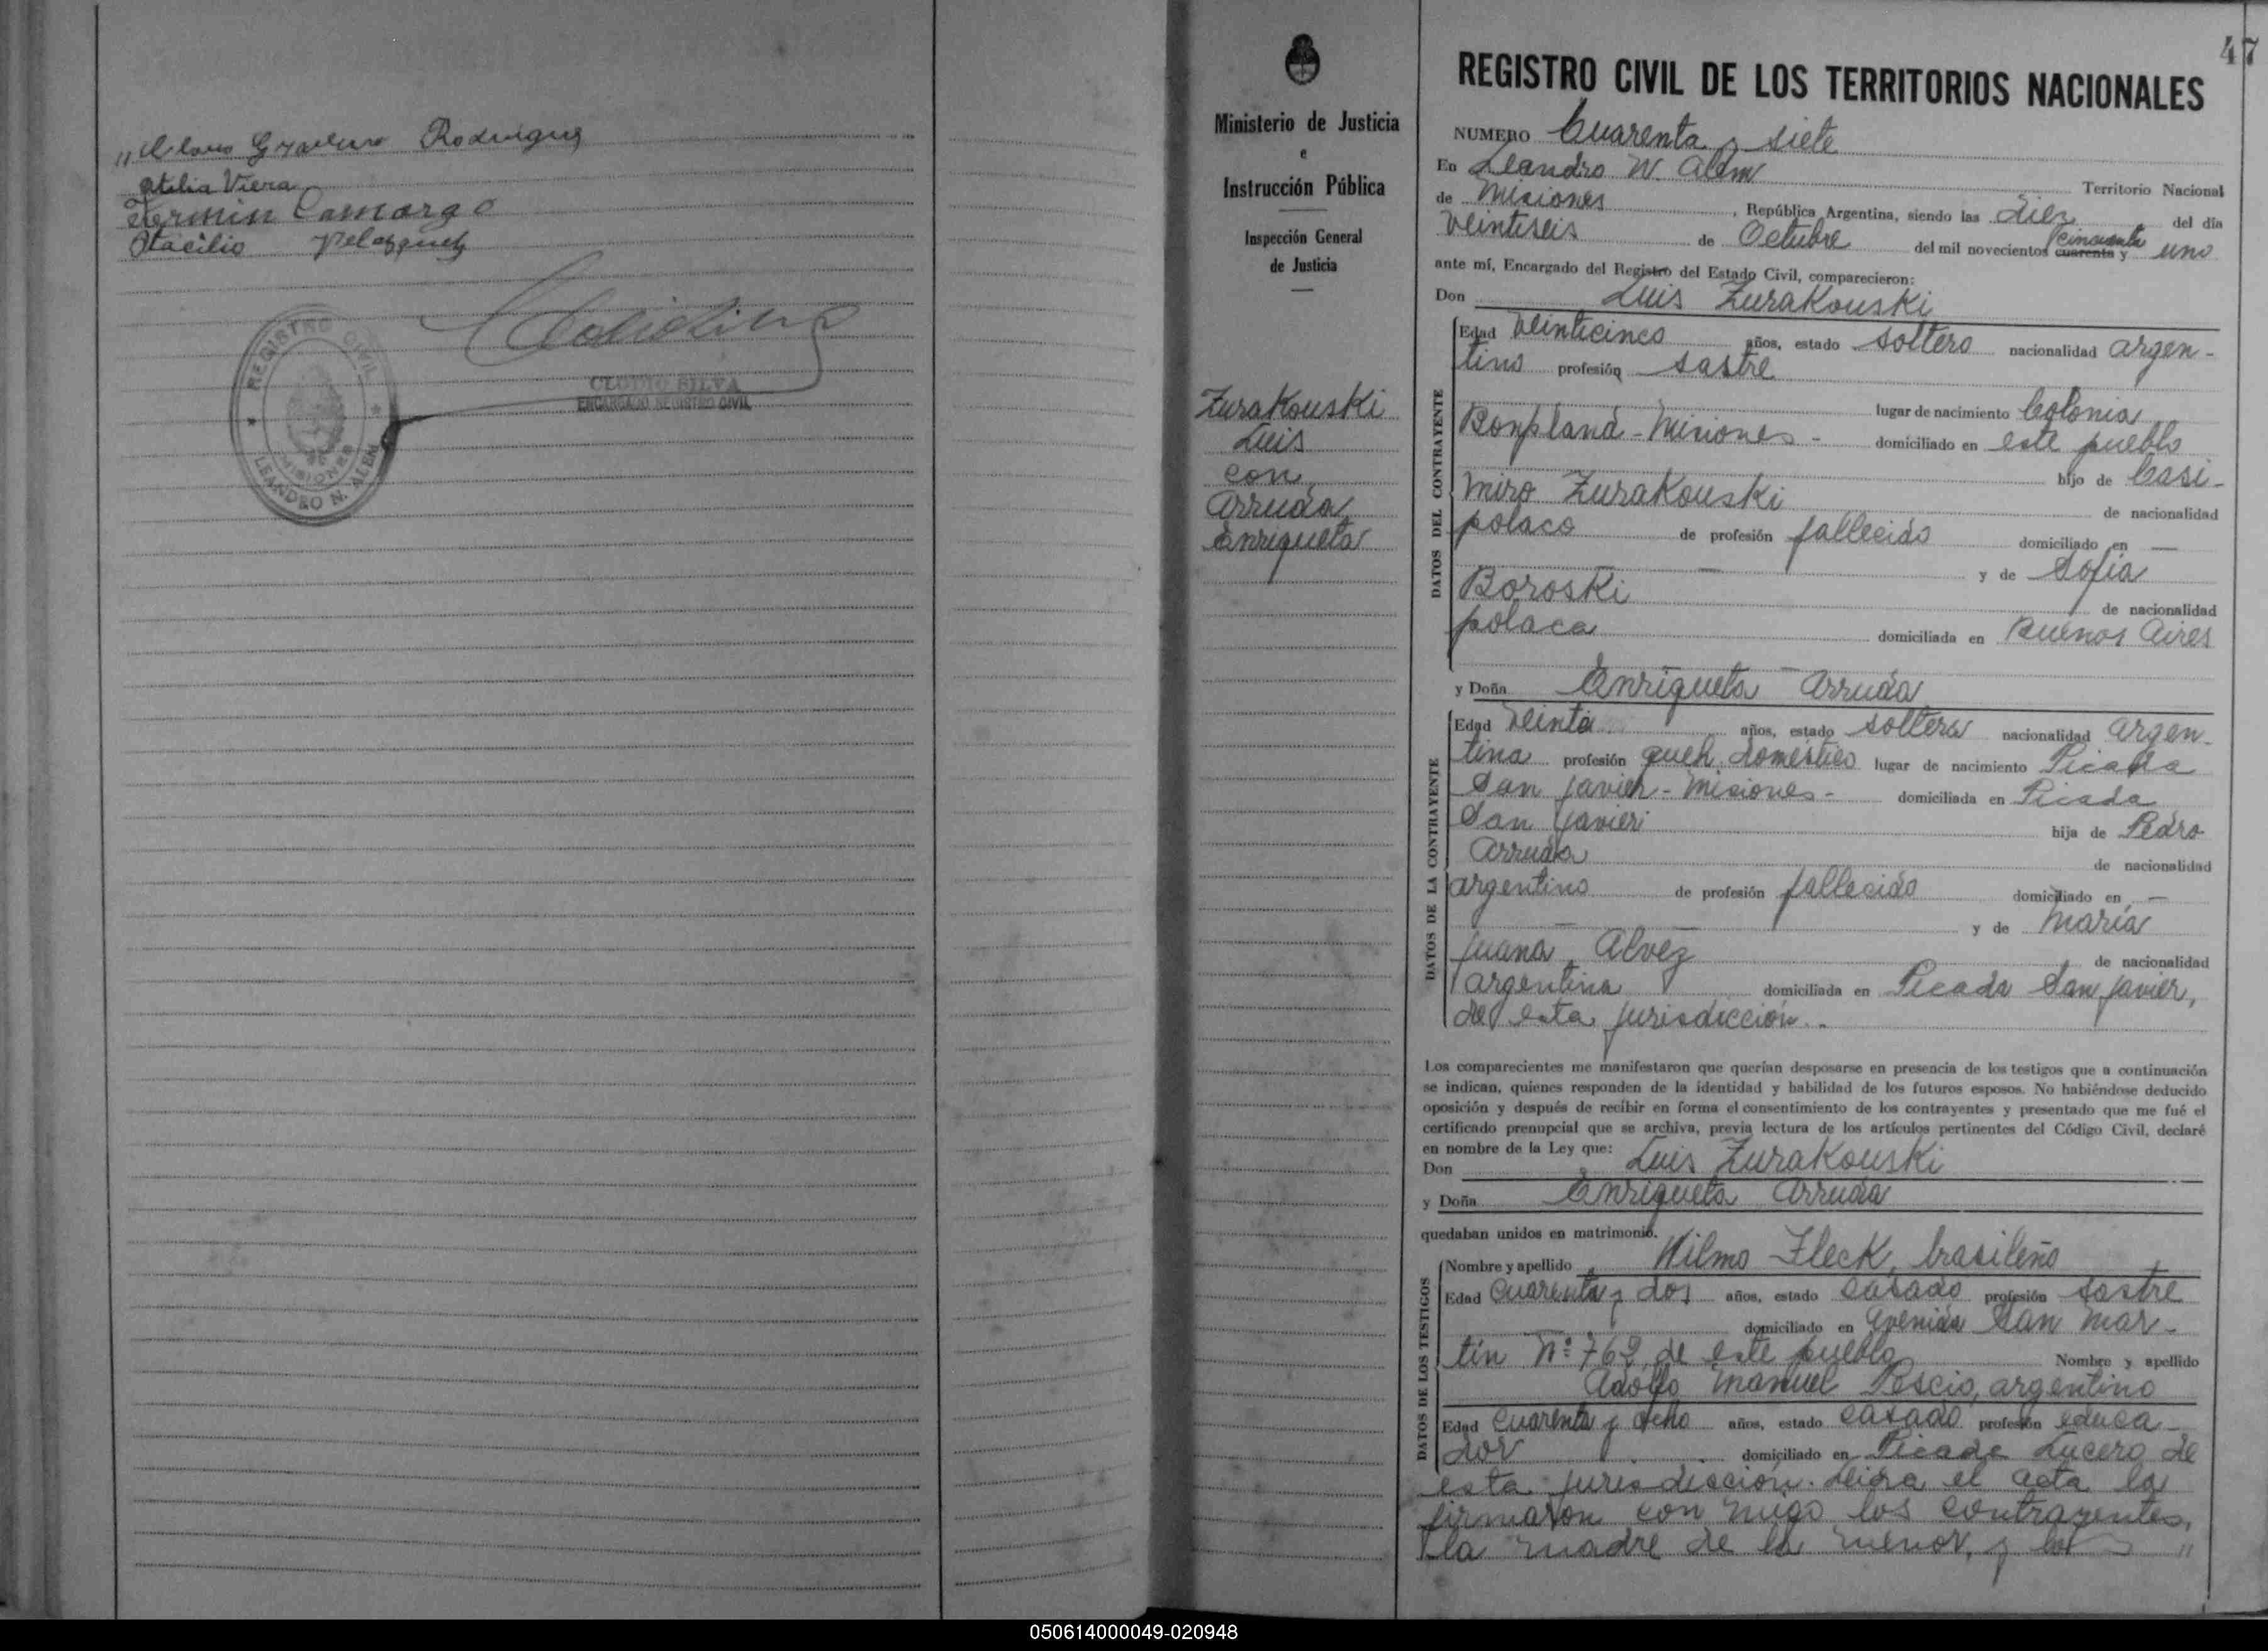 Rodriguez
Otilia Viera
Fermin Camargo
Otacilio Velazquez
REGISTRO CIVIL
MISIONES
LEANDRO N. ALEM
CLODIO SILVA
ENCARGADO REGISTRO CIVIL
47
Ministerio de Justicia
e
Instrucción Pública
Inspección General
de Justicia
Zurakouski
Luis
con
Arruda
Enriqueta
REGISTRO CIVIL DE LOS TERRITORIOS NACIONALES
NUMERO Cuarenta y siete
En Leandro N. Alem Territorio Nacional
de Misiones, República Argentina, siendo las diez del día
veintiseis de Octubre del mil novecientos cuarenta cincuenta y uno
ante mí, Encargado del Registro del Estado Civil, comparecieron:
Don Luis Zurakouski
DATOS DEL CONTRAYENTE
Edad veinticinco años, estado soltero nacionalidad argen-
tino profesión sastre
lugar de nacimiento Colonia
Bonpland - Misiones - domiciliado en este pueblo
hijo de Casi-
miro Zurakouski de nacionalidad
polaco de profesión fallecido domiciliado en —
— y de Sofia
Boroski de nacionalidad
polaca domiciliada en Buenos Aires
y Doña Enriqueta Arruda
DATOS DE LA CONTRAYENTE
Edad veinte años, estado soltera nacionalidad argen-
tina profesión queh. doméstico lugar de nacimiento Picada
San Javier - Misiones - domiciliada en Picada
San Javier hija de Pedro
Arruda de nacionalidad
argentino de profesión fallecido domiciliado en —
— y de María
Juana Alvez de nacionalidad
argentina domiciliada en Picada San Javier,
de esta jurisdicción.-
Los comparecientes me manifestaron que querían desposarse en presencia de los testigos que a continuación
se indican, quienes responden de la identidad y habilidad de los futuros esposos. No habiéndose deducido
oposición y después de recibir en forma el consentimiento de los contrayentes y presentado que me fué el
certificado prenupcial que se archiva, previa lectura de los artículos pertinentes del Código Civil, declaré
en nombre de la Ley que:
Don Luis Zurakouski
y Doña Enriqueta Arruda
quedaban unidos en matrimonio.
DATOS DE LOS TESTIGOS
Nombre y apellido Wilmo Fleck, brasileño
Edad cuarenta y dos años, estado casado profesión sastre
domiciliado en Avenida San Mar-
tín Nº 769, de este pueblo Nombre y apellido
Adolfo Manuel Pescio, argentino
Edad cuarenta y ocho años, estado casado profesión educa-
dor domiciliado en Picada Lucero de
esta jurisdicción. Leida el acta la
firmaron con migo los contrayentes,
la madre de la menor, y los "
050614000049-020948